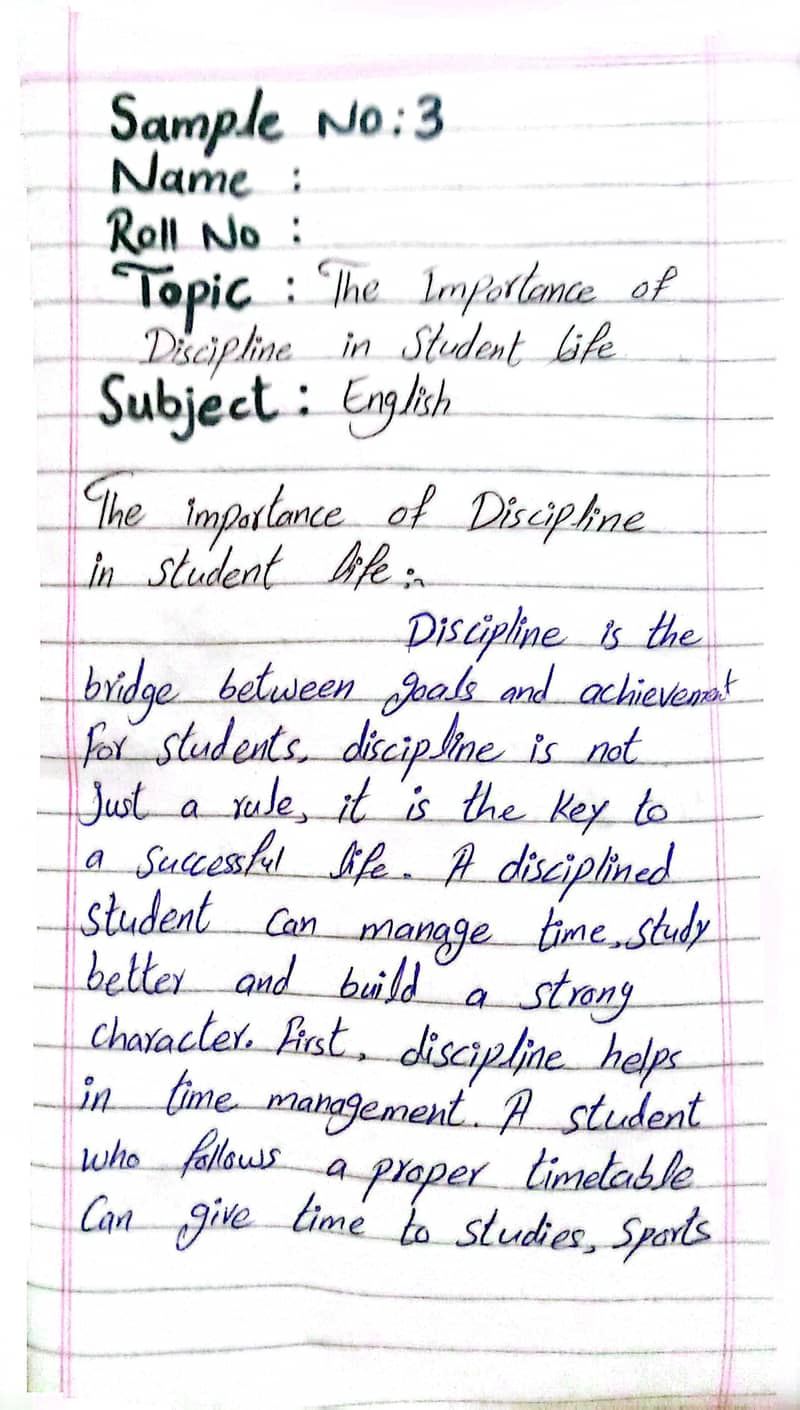 Sample No: 3
Name :
Roll No :
Topic : The Importance of
Discipline in Student life
Subject : English
The importance of Discipline
in student life :~
Discipline is the
bridge between goals and achievement
For students, discipline is not
just a rule, it is the key to
a successful life. A disciplined
student can manage time, study
better and build a strong
character. First, discipline helps
in time management. A student
who follows a proper timetable
Can give time to studies, Sports